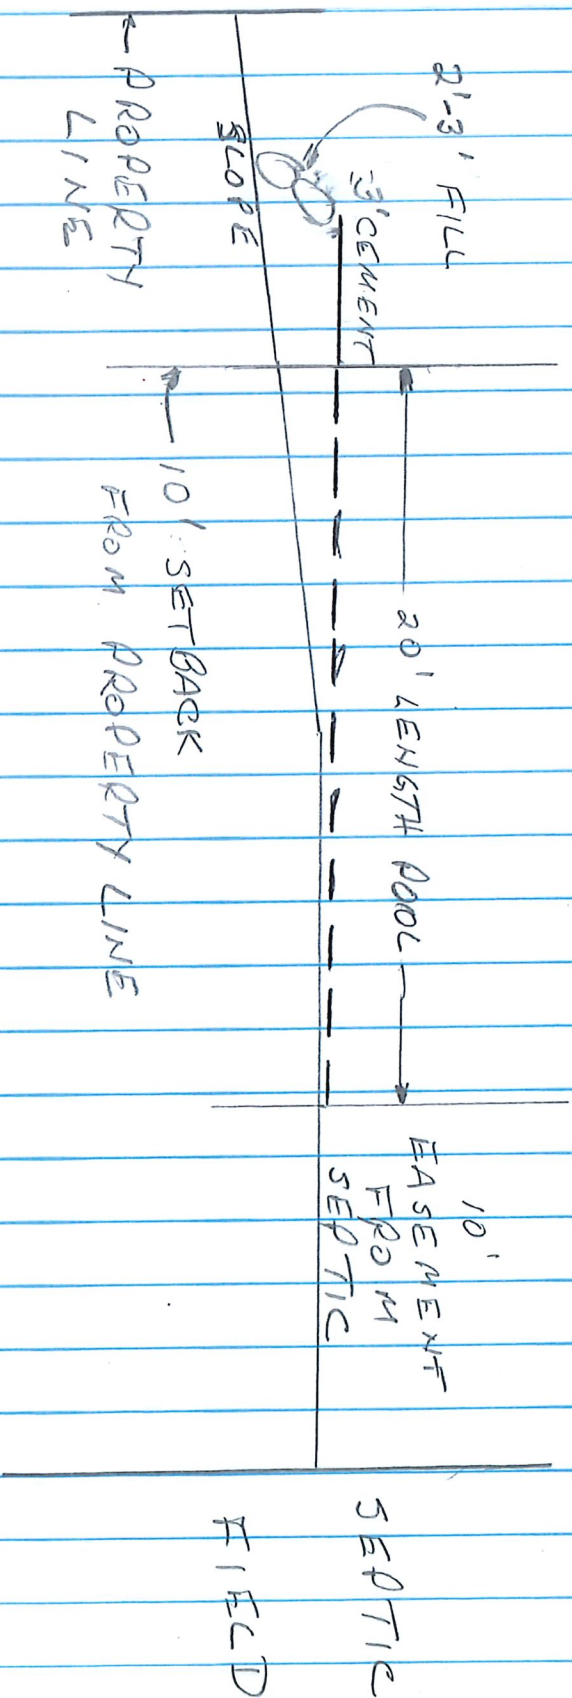 2'-3' FILL
3' CEMENT
SLOPE
← PROPERTY
LINE
20' LENGTH POOL
10' SETBACK
FROM PROPERTY LINE
10'
EASEMENT
FROM
SEPTIC
SEPTIC
FIELD